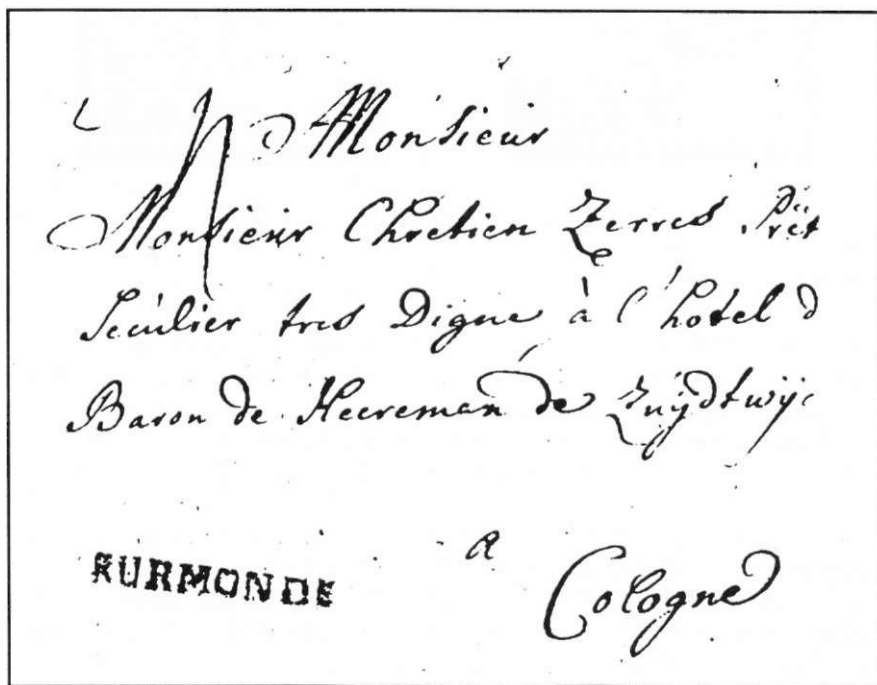 Monsieur
Monsieur Chretien Zerres Prêt
Seculier tres Digne à l'hotel d
Baron de Heereman de Zuÿdtwÿc
a
RURMONDE
Cologne